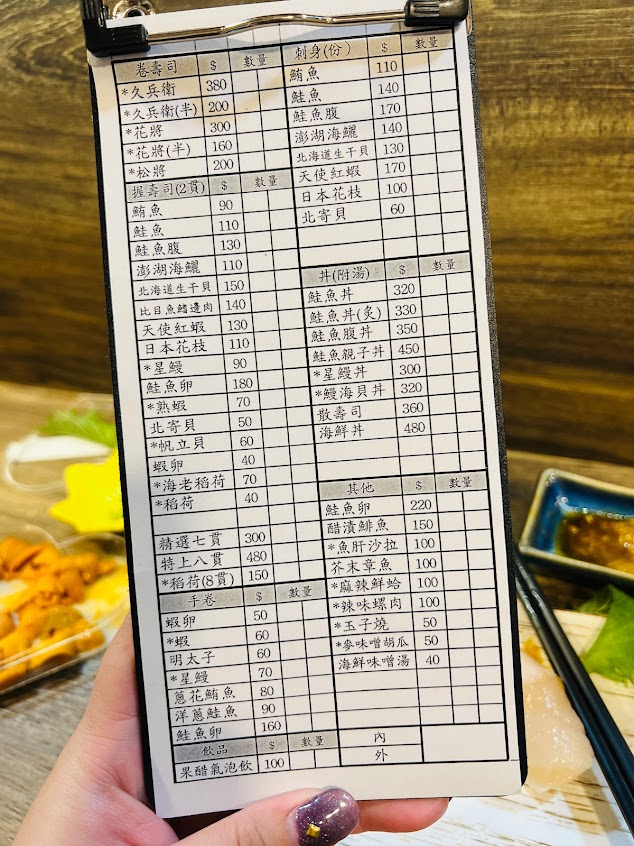 卷壽司 $ 數量
*久兵衛 380
*久兵衛(半) 200
*花將 300
*花將(半) 160
*松將 200
握壽司(2貫) $ 數量
鮪魚 90
鮭魚 110
鮭魚腹 130
澎湖海鱺 110
北海道生干貝 150
比目魚鰭邊肉 140
天使紅蝦 130
日本花枝 110
*星鰻 90
鮭魚卵 180
*熟蝦 70
北寄貝 50
*帆立貝 60
蝦卵 40
*海老稻荷 70
*稻荷 40
精選七貫 300
特上八貫 480
*稻荷(8貫) 150
手卷 $ 數量
蝦卵 50
*蝦 60
明太子 60
*星鰻 70
蔥花鮪魚 80
洋蔥鮭魚 90
鮭魚卵 160
飲品 $ 數量
果醋氣泡飲 100
刺身(份) $ 數量
鮪魚 110
鮭魚 140
鮭魚腹 170
澎湖海鱺 140
北海道生干貝 130
天使紅蝦 170
日本花枝 100
北寄貝 60
丼(附湯) $ 數量
鮭魚丼 320
鮭魚丼(炙) 330
鮭魚腹丼 350
鮭魚親子丼 450
*星鰻丼 300
*鰻海貝丼 320
散壽司 360
海鮮丼 480
其他 $ 數量
鮭魚卵 220
醋漬鯡魚 150
*魚肝沙拉 100
芥末章魚 100
*麻辣鮮蛤 100
*辣味螺肉 100
*玉子燒 50
*麥味噌胡瓜 50
海鮮味噌湯 40
內
外